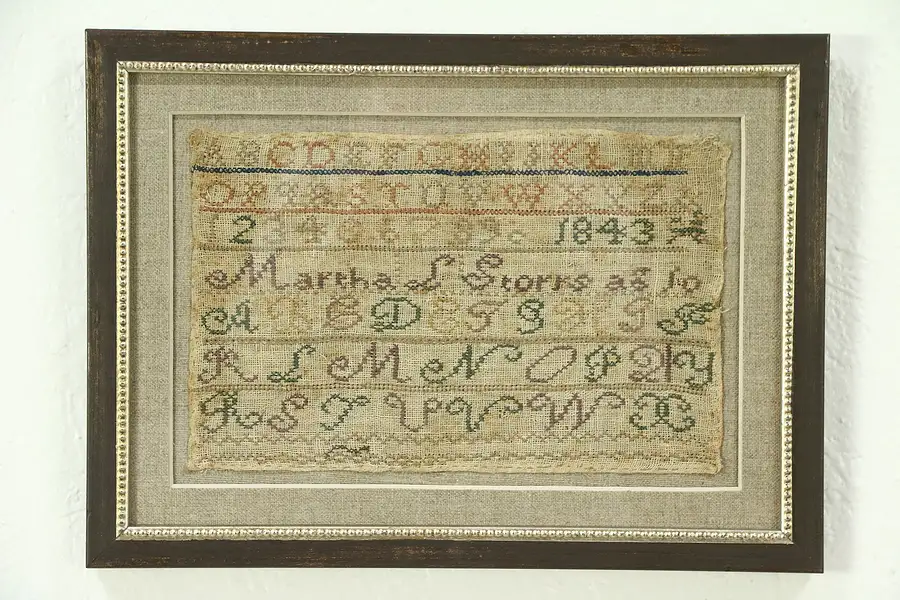 A B C D E F G H I J K L M
O P Q R S T U V W X Y Z
2 3 4 5 6 7 8 9 0 1843
Martha L Storrs ag 10
A B C D E F G H I J
K L M N O P Q Y
R S T U V W X